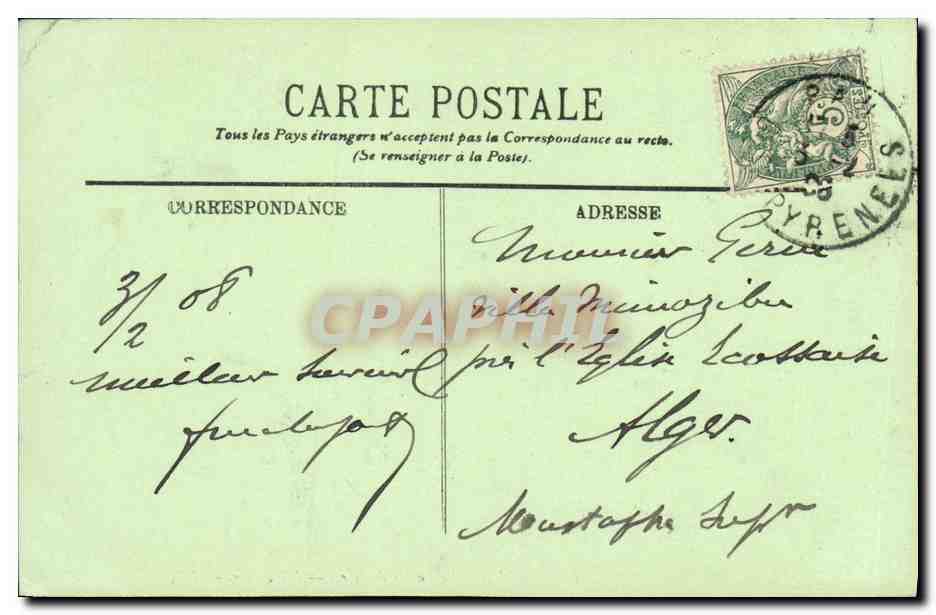 CARTE POSTALE
Tous les Pays étrangers n'acceptent pas la Correspondance au recto.
(Se renseigner à la Poste).
CORRESPONDANCE
3/2 08
Meilleur Souvenir
ADRESSE
Monsieur
villa
près l'Eglise Ecossaise
Alger.
Mustapha Supr
PYRENEES
CPAPHIL